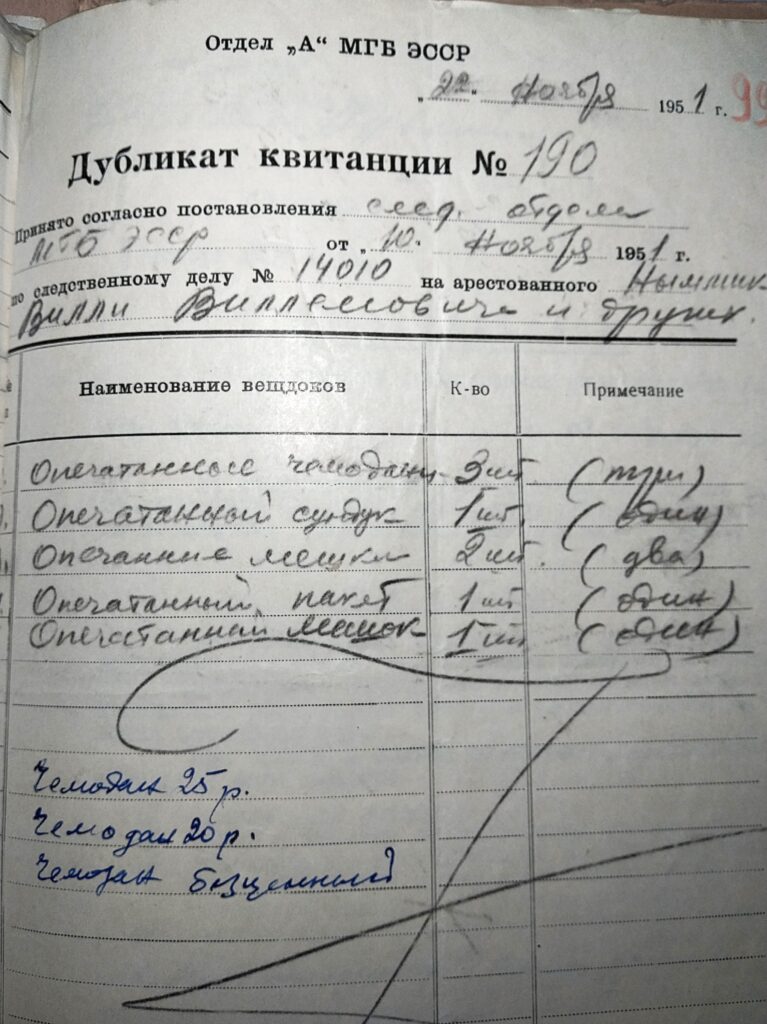 Отдел „А“ МГБ ЭССР
„22“ Ноября 1951 г. 99
Дубликат квитанции № 190
Принято согласно постановления след. отдела
МГБ ЭССР от „10. Ноября 1951 г.
по следственному делу № 14010 на арестованного Ныммик
Вилли Виллемовича и друг.
Наименование вещдоков К-во Примечание
Опечатанные чемоданы 3 шт. (три)
Опечатанный сундук 1 шт. (один)
Опечанние мешки 2 шт. (два)
Опечатанный пакет 1 шт (один)
Опечатанный мешок 1 шт (один)
Чемодан 25 р.
Чемодан 20 р.
Чемодан безценный